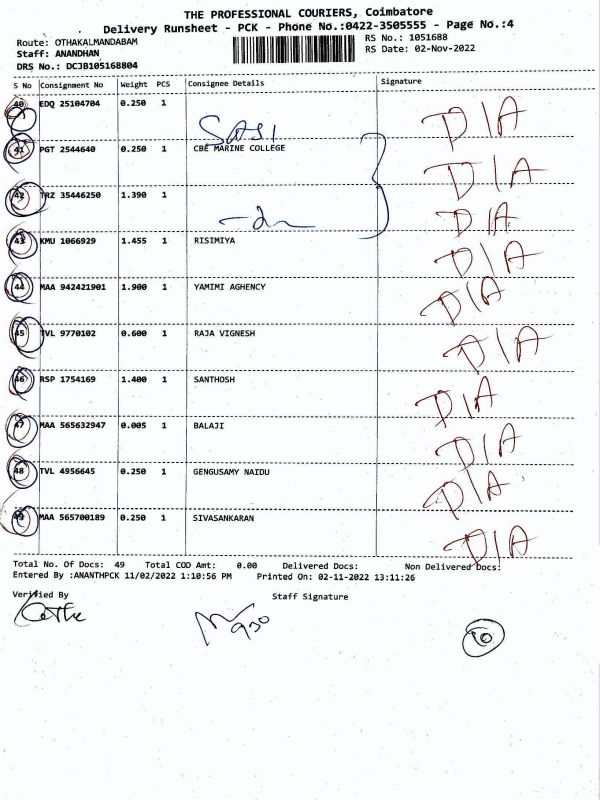 THE PROFESSIONAL COURIERS, Coimbatore
Delivery Runsheet - PCK - Phone No.:0422-3505555 - Page No.:4
Route: OTHAKALMANDABAM
RS No.: 1051688
Staff: ANANDHAN
RS Date: 02-Nov-2022
DRS No.: DCJB105168804
S No Consignment No Weight PCS Consignee Details Signature
40 EDQ 25104704 0.250 1 D/A
SASI
41 PGT 2544640 0.250 1 CBE MARINE COLLEGE D/A
42 TRZ 35446250 1.390 1 D/A
43 KMU 1066929 1.455 1 RISIMIYA D/A
44 MAA 942421901 1.900 1 YAMIMI AGHENCY D/A
45 TVL 9770102 0.600 1 RAJA VIGNESH D/A
46 RSP 1754169 1.400 1 SANTHOSH D/A
47 MAA 565632947 0.005 1 BALAJI D/A
48 TVL 4956645 0.250 1 GENGUSAMY NAIDU D/A
49 MAA 565700189 0.250 1 SIVASANKARAN D/A
Total No. Of Docs: 49 Total COD Amt: 0.00 Delivered Docs: Non Delivered Docs:
Entered By :ANANTHPCK 11/02/2022 1:10:56 PM Printed On: 02-11-2022 13:11:26
Verified By Staff Signature
930
10